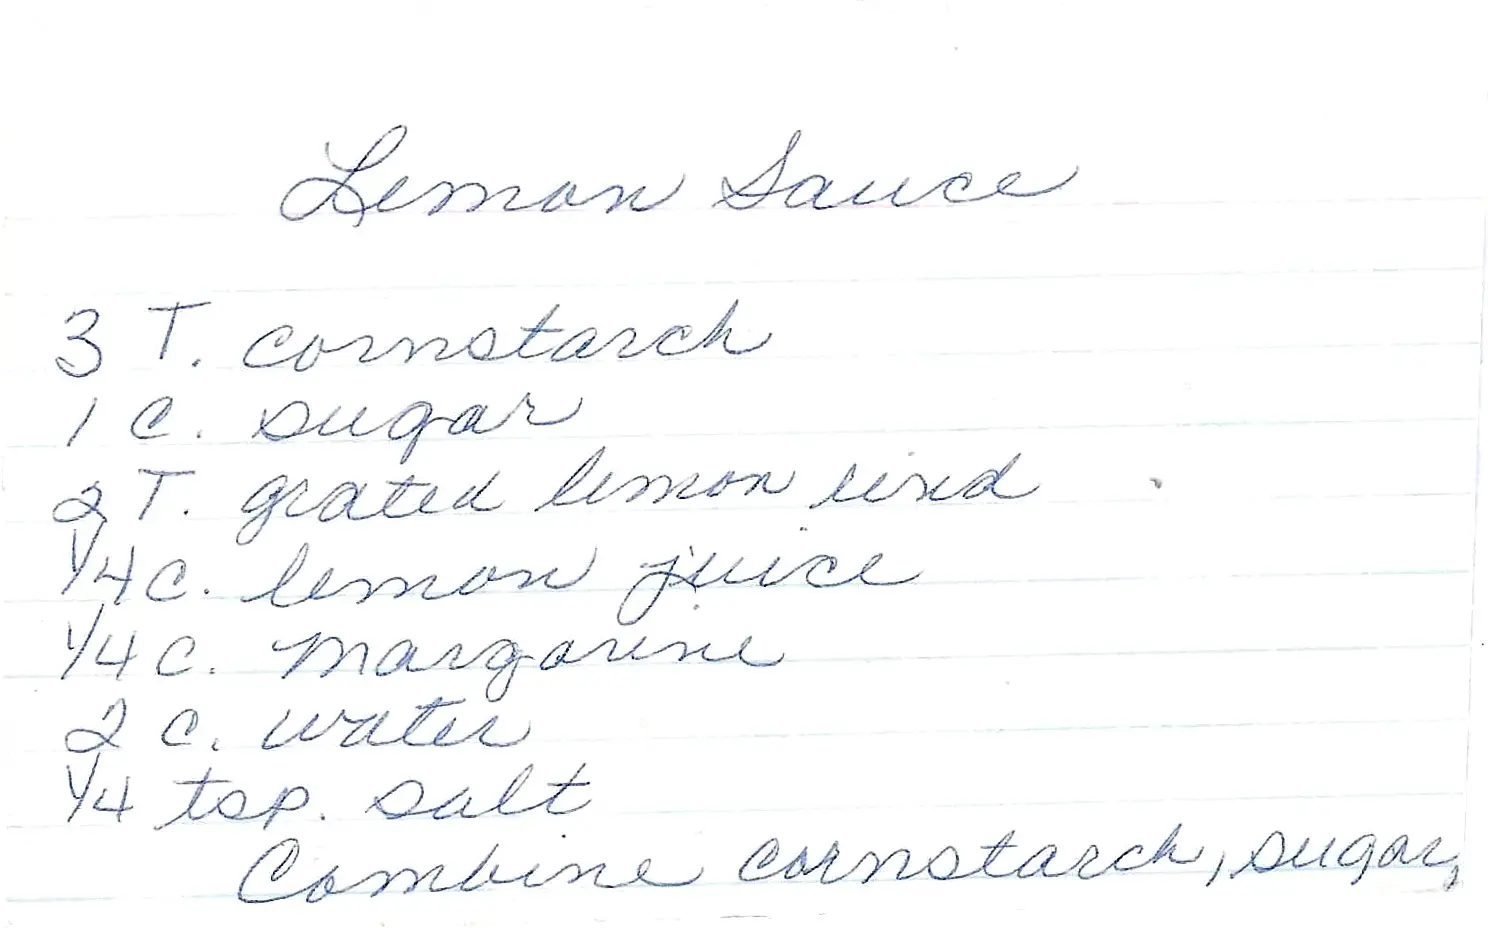 Lemon Sauce
3 T. cornstarch
1 C. sugar
2 T. grated lemon rind
1/4 C. lemon juice
1/4 C. margarine
2 C. water
1/4 tsp. salt
Combine cornstarch, sugar,